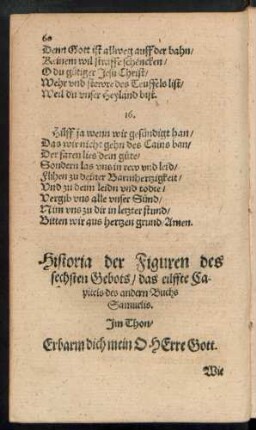 60
Denn Gott ist allweg auff der bahn/
Keinem wil straffe schencken/
O du gütiger Jesu Christ/
Wehr vnd stewre des Teuffels list/
Weil du vnser Heyland bist.
16.
Hilff ja wenn wir gesündigt han/
Das wir nicht gehn des Cains ban/
Der faren lies dein güte/
Sondern las vns in rew vnd leid/
Flihen zu deiner Barmhertzigkeit/
Vnd zu deim leidn vnd todte/
Vergib vns alle vnser Sünd/
Nim vns zu dir in letzter stund/
Bitten wir aus hertzen grund Amen.
Historia der Figuren des
sechsten Gebots/ das eilffte Ca-
pitels des andern Buchs
Samuelis.
Im Thon/
Erbarm dich mein O HErre Gott.
Wie